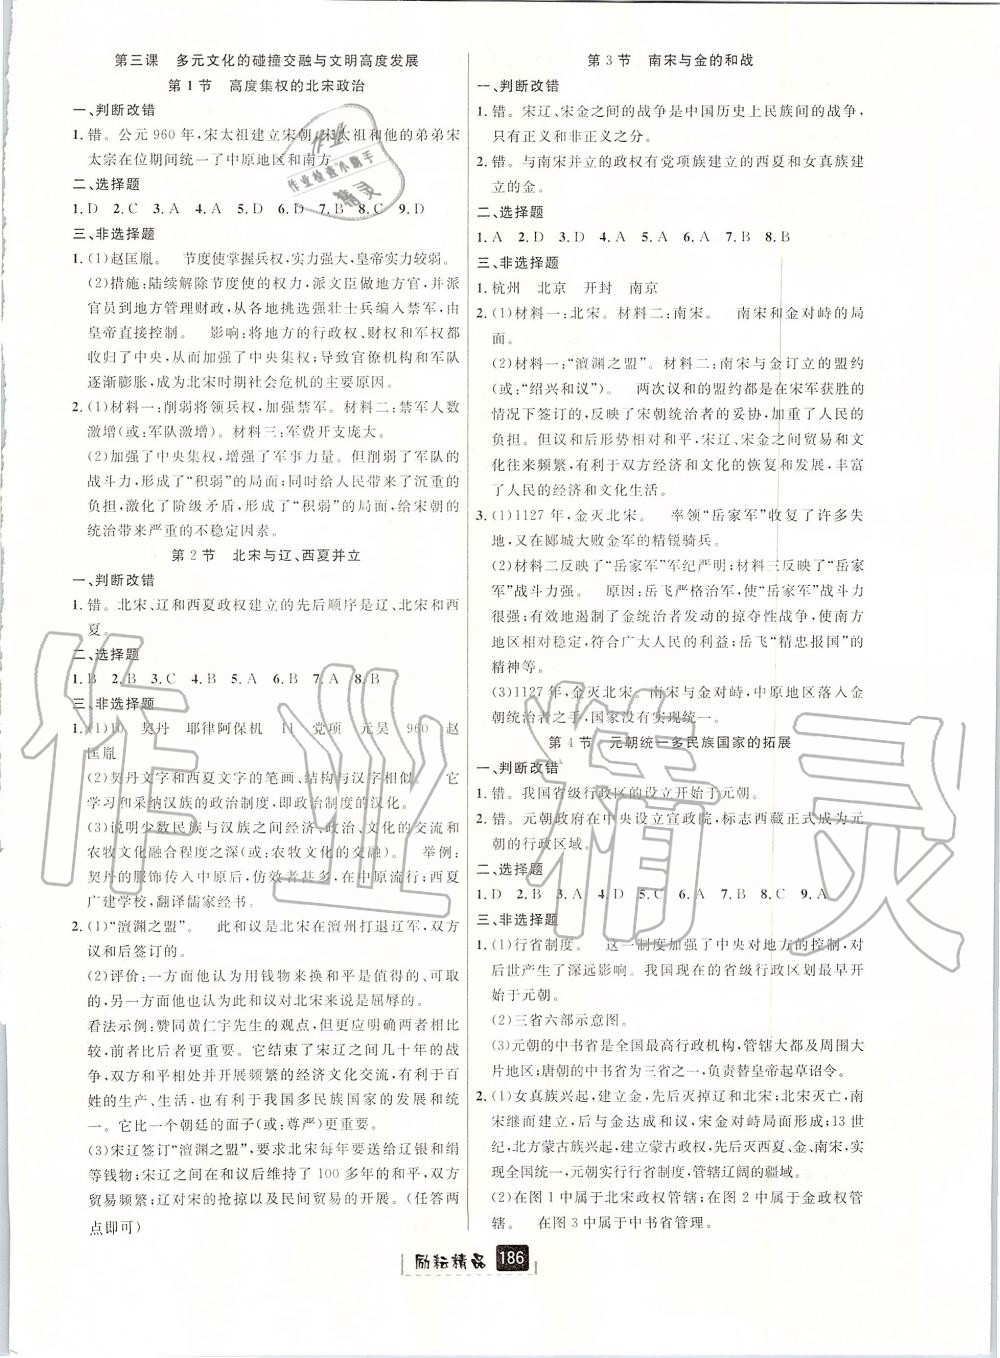 第三课 多元文化的碰撞交融与文明高度发展
第1节 高度集权的北宋政治
一、判断改错
1.错。公元960年,宋太祖建立宋朝,宋太祖和他的弟弟宋
太宗在位期间统一了中原地区和南方。
二、选择题
1.D 2.C 3.A 4.A 5.D 6.D 7.B 8.C 9.D
三、非选择题
1.(1)赵匡胤。 节度使掌握兵权,实力强大,皇帝实力较弱。
(2)措施:陆续解除节度使的权力,派文臣做地方官,并派
官员到地方管理财政,从各地挑选强壮士兵编入禁军,由
皇帝直接控制。 影响:将地方的行政权、财权和军权都
收归了中央,从而加强了中央集权;导致官僚机构和军队
逐渐膨胀,成为北宋时期社会危机的主要原因。
2.(1)材料一:削弱将领兵权,加强禁军。材料二:禁军人数
激增(或:军队激增)。材料三:军费开支庞大。
(2)加强了中央集权,增强了军事力量。但削弱了军队的
战斗力,形成了“积弱”的局面;同时,给人民带来了沉重的
负担,激化了阶级矛盾,形成了“积弱”的局面,给宋朝的
统治带来严重的不稳定因素。
第2节 北宋与辽、西夏并立
一、判断改错
1.错。北宋、辽和西夏政权建立的先后顺序是辽、北宋和西
夏。
二、选择题
1.B 2.B 3.C 4.C 5.A 6.B 7.A 8.B
三、非选择题
1.(1)10 契丹 耶律阿保机 11 党项 元昊 960 赵
匡胤
(2)契丹文字和西夏文字的笔画、结构与汉字相似。 它
学习和采纳汉族的政治制度,即政治制度的汉化。
(3)说明少数民族与汉族之间经济、政治、文化的交流和
农牧文化融合程度之深(或:农牧文化的交融)。 举例:
契丹的服饰传入中原后,仿效者甚多,在中原流行;西夏
广建学校,翻译儒家经书。
2.(1)“澶渊之盟”。 此和议是北宋在澶州打退辽军,双方
议和后签订的。
(2)评价:一方面他认为用钱物来换和平是值得的、可取
的,另一方面他也认为此和议对北宋来说是屈辱的。
看法示例:赞同黄仁宇先生的观点,但更应明确两者相比
较,前者比后者更重要。它结束了宋辽之间几十年的战
争,双方和平相处并开展频繁的经济文化交流,有利于百
姓的生产、生活,也有利于我国多民族国家的发展和统
一。它比一个朝廷的面子(或:尊严)更重要。
(3)宋辽签订“澶渊之盟”,要求北宋每年要送给辽银和绢
等钱物;宋辽之间在和议后维持了100多年的和平,双方
贸易频繁;辽对宋的抢掠以及民间贸易的开展。(任答两
点即可)
第3节 南宋与金的和战
一、判断改错
1.错。宋辽、宋金之间的战争是中国历史上民族间的战争,
只有正义和非正义之分。
2.错。与南宋并立的政权有党项族建立的西夏和女真族建
立的金。
二、选择题
1.A 2.D 3.D 4.C 5.A 6.D 7.B 8.B
三、非选择题
1.杭州 北京 开封 南京
2.(1)材料一:北宋。材料二:南宋。 南宋和金对峙的局
面。
(2)材料一:“澶渊之盟”。材料二:南宋与金订立的盟约
(或:“绍兴和议”)。 两次议和的盟约都是在宋军获胜的
情况下签订的,反映了宋朝统治者的妥协,加重了人民的
负担。但议和后形势相对和平,宋辽、宋金之间贸易和文
化往来频繁,有利于双方经济和文化的恢复和发展,丰富
了人民的经济和文化生活。
3.(1)1127年,金灭北宋。 率领“岳家军”收复了许多失
地,又在郾城大败金军的精锐骑兵。
(2)材料二反映了“岳家军”军纪严明;材料三反映了“岳家
军”战斗力强。 原因:岳飞严格治军,“岳家军”战斗力
很强;有效地遏制了金统治者发动的掠夺性战争,使南方
地区相对稳定,符合广大人民的利益;岳飞“精忠报国”的
精神等。
(3)1127年,金灭北宋。南宋与金对峙,中原地区落入金
朝统治者之手,国家没有实现统一。
第4节 元朝统一多民族国家的拓展
一、判断改错
1.错。我国省级行政区的设立开始于元朝。
2.错。元朝政府在中央设立宣政院,标志西藏正式成为元
朝的行政区域。
二、选择题
1.D 2.B 3.A 4.D 5.C 6.A 7.B 8.C 9.A
三、非选择题
1.(1)行省制度。 这一制度加强了中央对地方的控制,对
后世产生了深远影响。我国现在的省级行政区划最早开
始于元朝。
(2)三省六部示意图。
(3)元朝的中书省是全国最高行政机构,管辖大都及周围大
片地区;唐朝的中书省为三省之一,负责替皇帝起草诏令。
2.(1)女真族兴起,建立金,先后灭掉辽和北宋;北宋灭亡,南
宋继而建立,后与金达成和议,宋金对峙局面形成;13世
纪,北方蒙古族兴起,建立蒙古政权,先后灭西夏、金、南宋,
实现全国统一,元朝实行行省制度,管辖辽阔的疆域。
(2)在图1中属于北宋政权管辖;在图2中属于金政权管
辖。 在图3中属于中书省管理。
励耘精品 186
作业
作业检查小助手
精灵
作业精灵